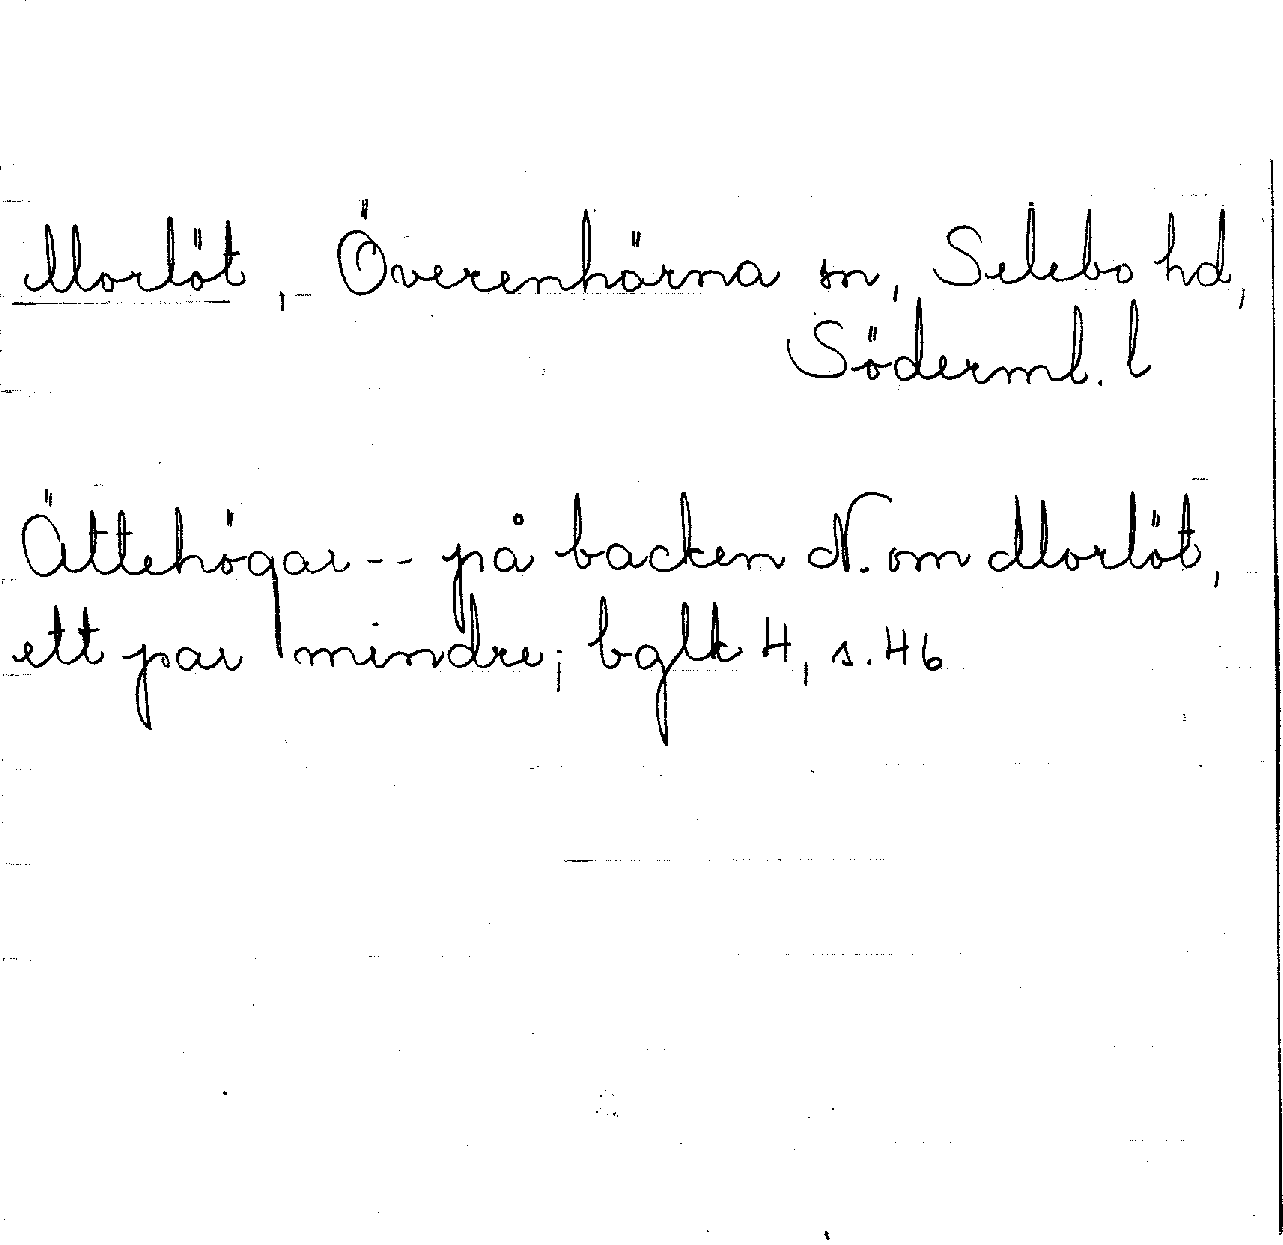 Morlöt, Överenhörna sn, Selebo hd,
Söderml. l
Ättehögar -- på backen N. om Morlöt,
ett par mindre; bglk 4, s. 46